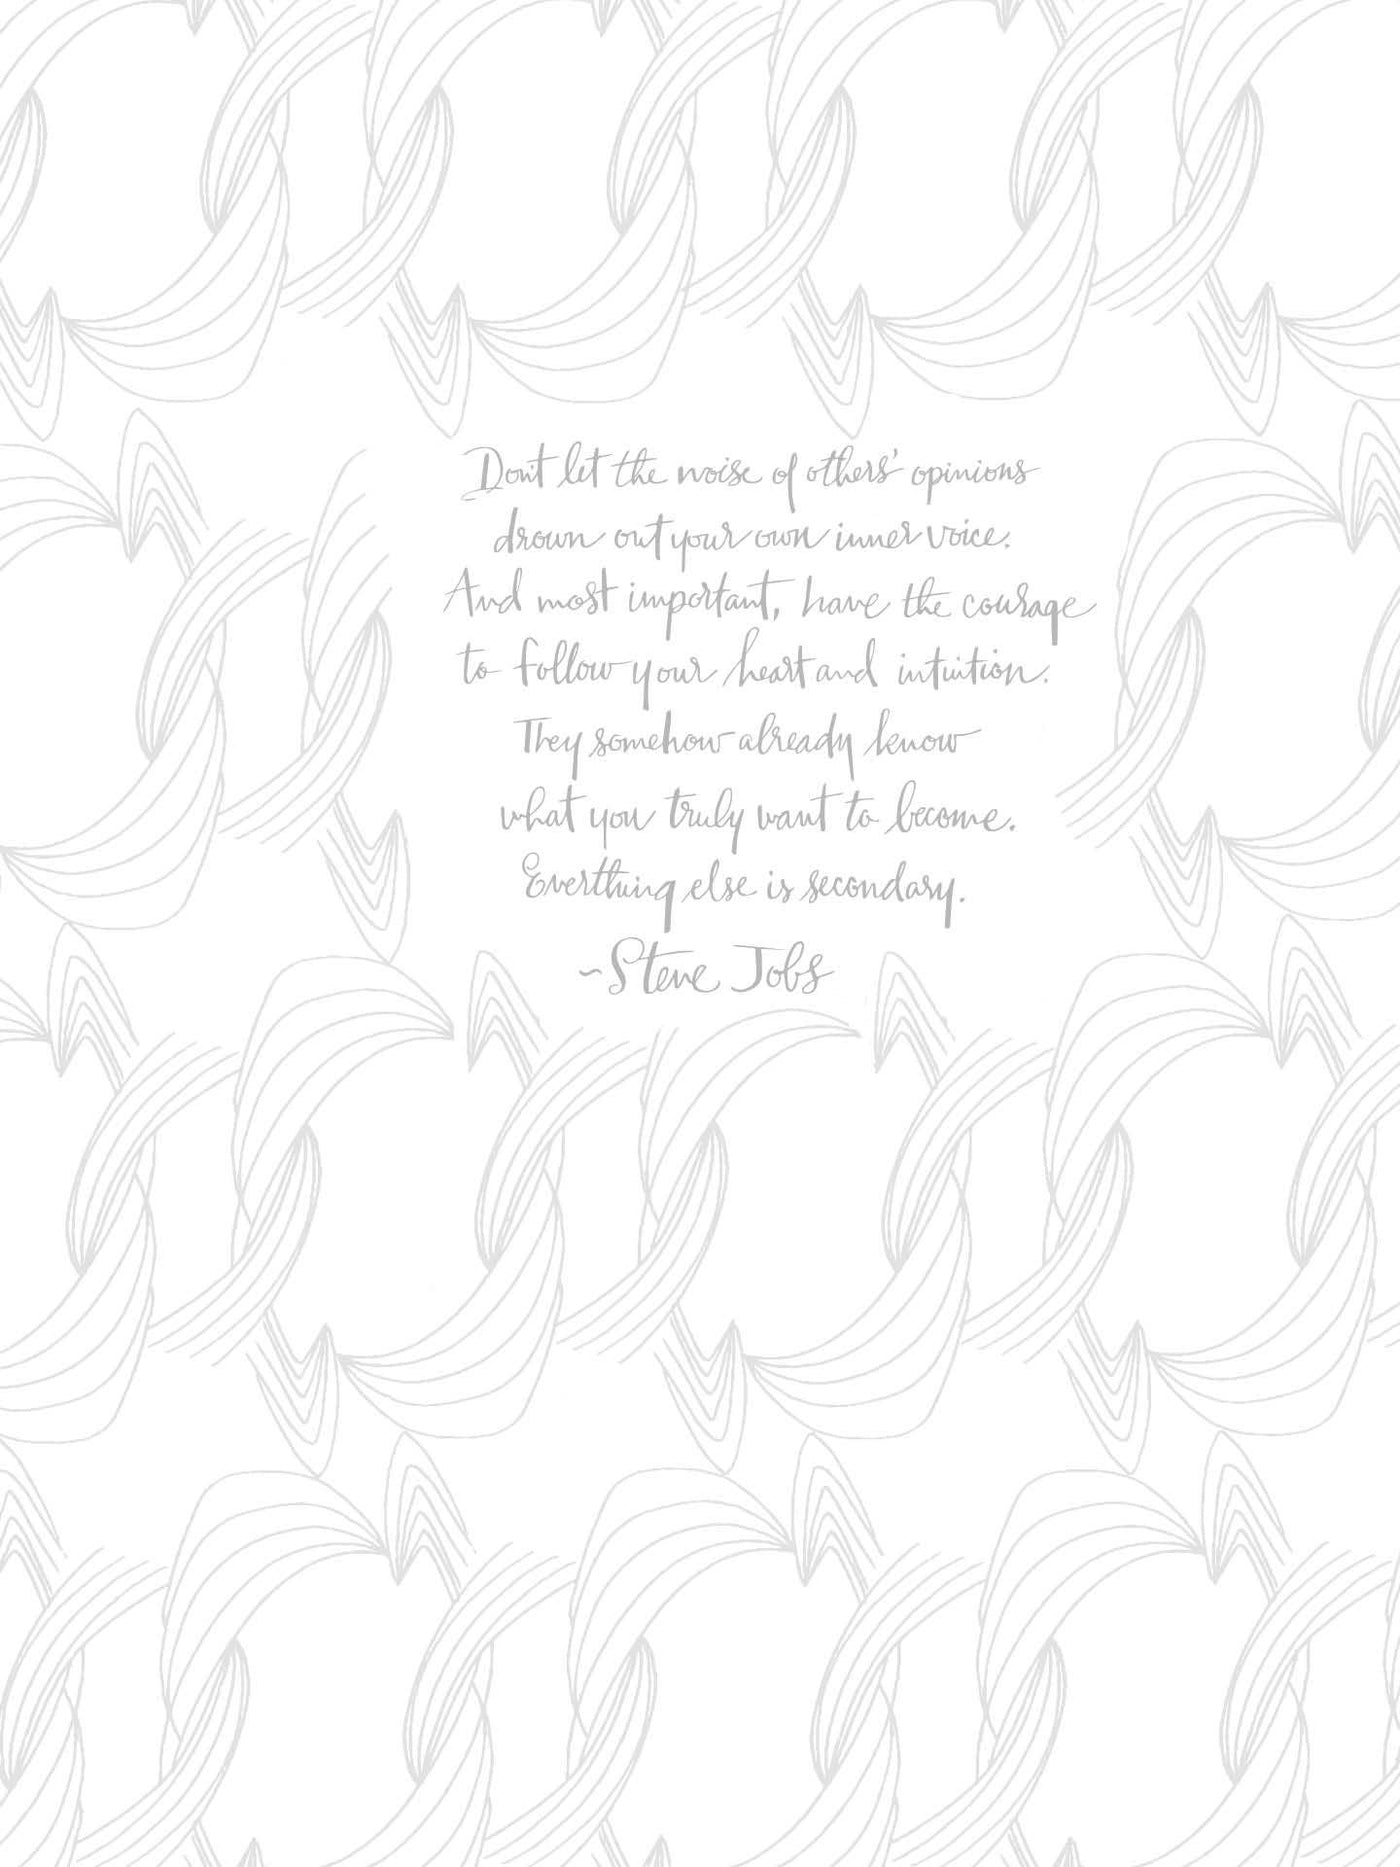 Don't let the noise of others' opinions
drown out your own inner voice.
And most important, have the courage
to follow your heart and intuition.
They somehow already know
what you truly want to become.
Everthing else is secondary.
~Steve Jobs